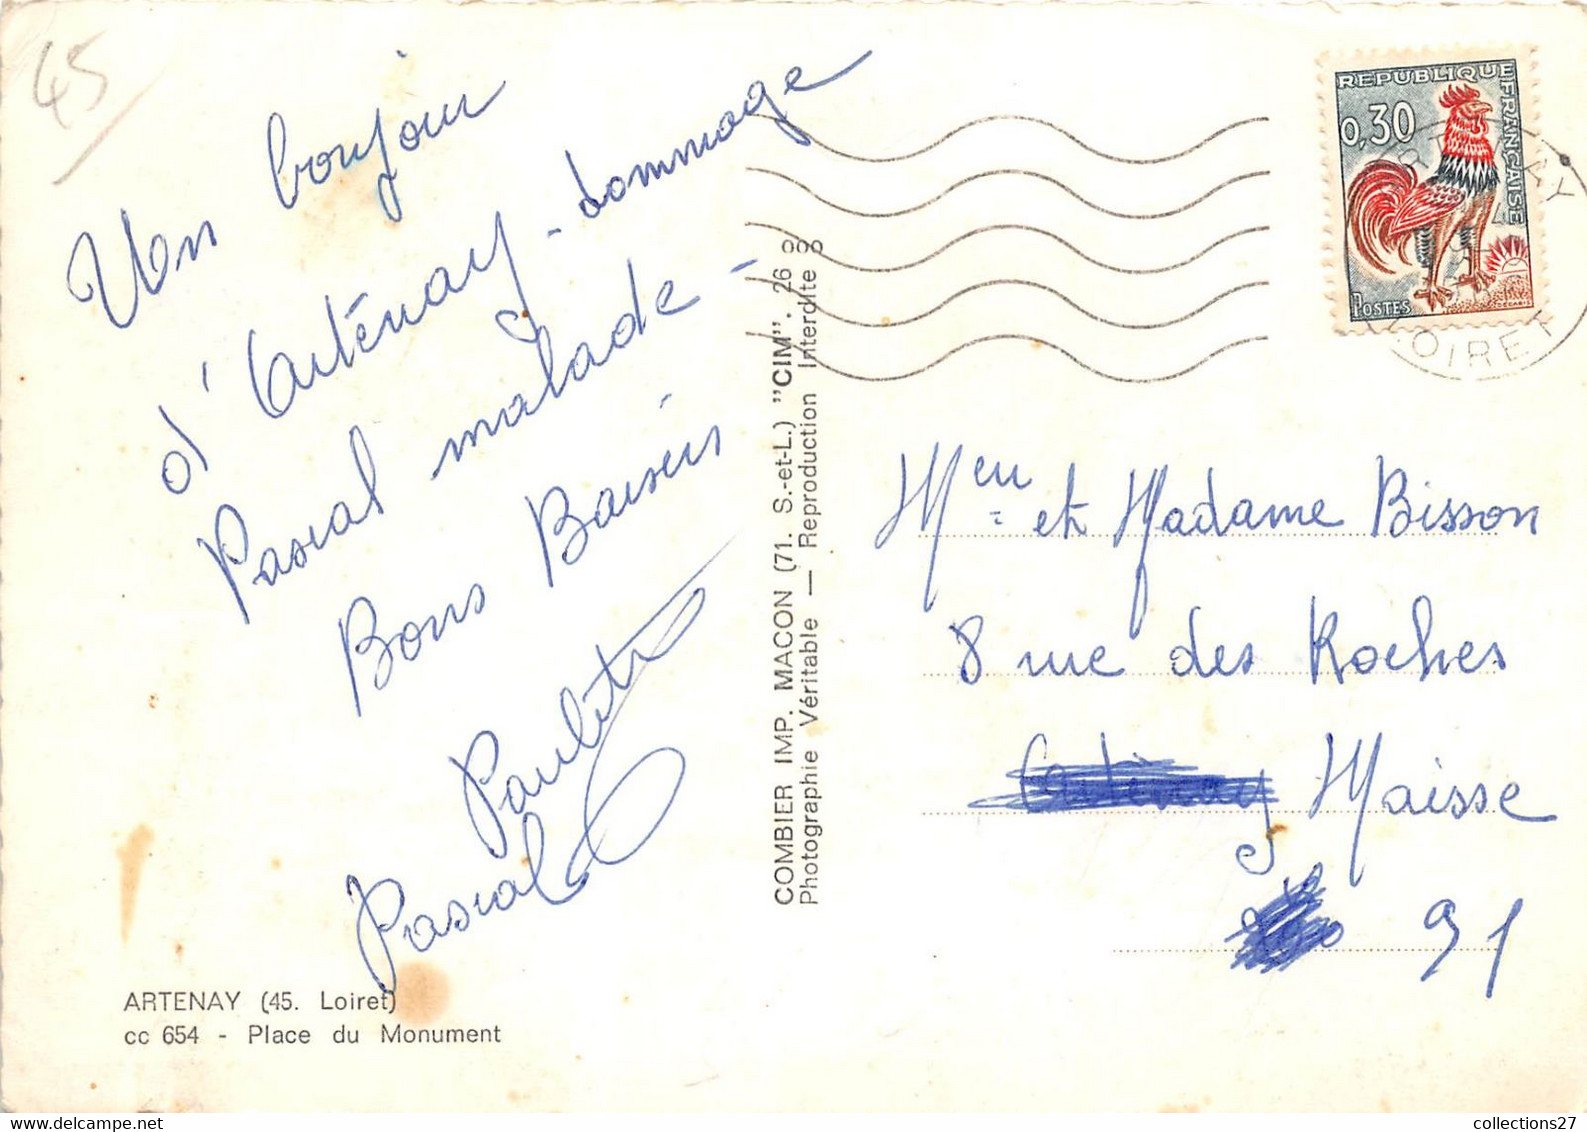 45
Un bonjour
d'Arténay - dommage
Pascal malade -
Bons Baisers
Paulette
Pascal
ARTENAY (45. Loiret)
cc 654 - Place du Monument
COMBIER IMP. MACON (71. S.-et-L.) "CIM". 26
Photographie Véritable — Reproduction Interdite
REPUBLIQUE FRANCAISE
0,30
POSTES
DECARIS
ARTENAY
LOIRET
Meu et Madame Bisson
8 rue des Roches
Maisse
91
collections27